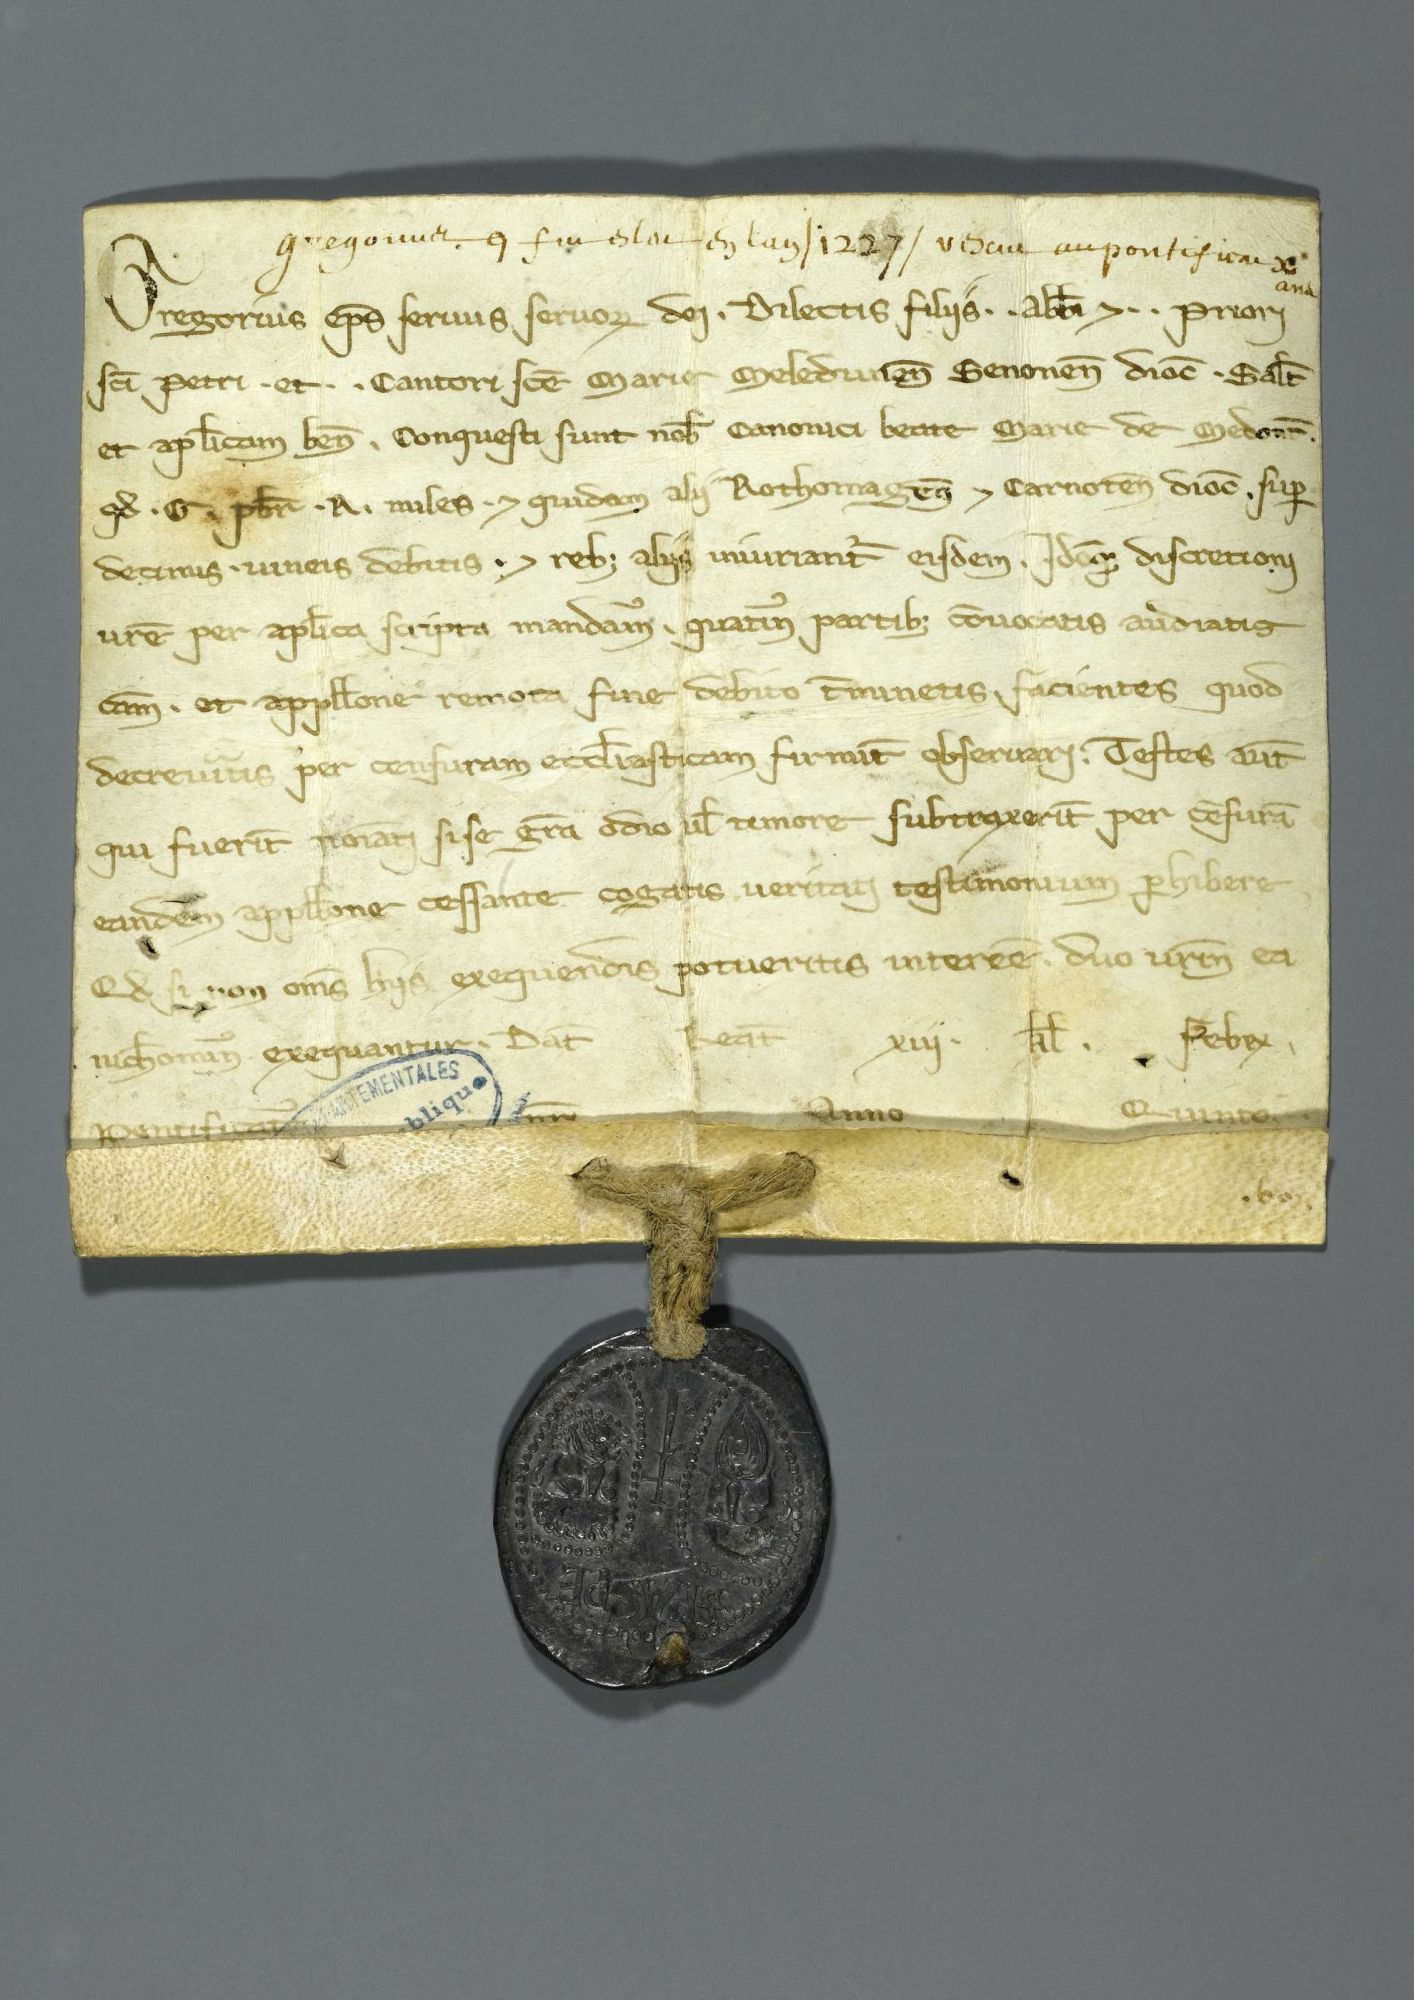 Gregorius 9 fu esleu en lan /1227/ vescut au pontificat
ans
Gregorius ep̄s seruus seruoꝝ dei . Dilectis filiis . . Abb̄i ⁊ . . Priori
sc̄i Petri . et . . Cantori sc̄e Marie Meledunen̄ Senonen̄ dioc̄ . Salt̄
et apl̄icam ben̄ . Conquesti sunt nob̄ Canonici beate Marie de Medont̄ .
qđ . G . pbr̄ . R . miles . ⁊ quidam alij Rothomagen̄ ⁊ Carnoten̄ dioc̄ . suꝑ
decimis . uineis debitis . ⁊ reb; alijs iniuriant̄ eisdem . Idōqꝫ discretioni
ur̄e per apl̄ica scripta mandam᷒ . quatin᷒ partib; c̄uocatis audiatis
cām . et appll̄one remota fine debito t̄minetis . facientes quod
decreueritis per censuram eccl̄iasticam firmit̄ obseruari . Testes aut̄
qui fuerīt noīati si se gr̄a odio ul̄ timore subtraxerīt per c̄esurā
eandem appll̄one cessante cogatis ueritati testimonium ꝑhibere
Qđ si non om̄s hijs exequendis potueritis interee᷑ . duo ur̄m ea
nichomin᷒ exequantur . Dat̄ Reat̄ xiij . kl̄ . Febr̄ .
Pontificat᷒ nr̄i Anno Quinto .
DÉPARTEMENTALES
. bo .
SPASPE